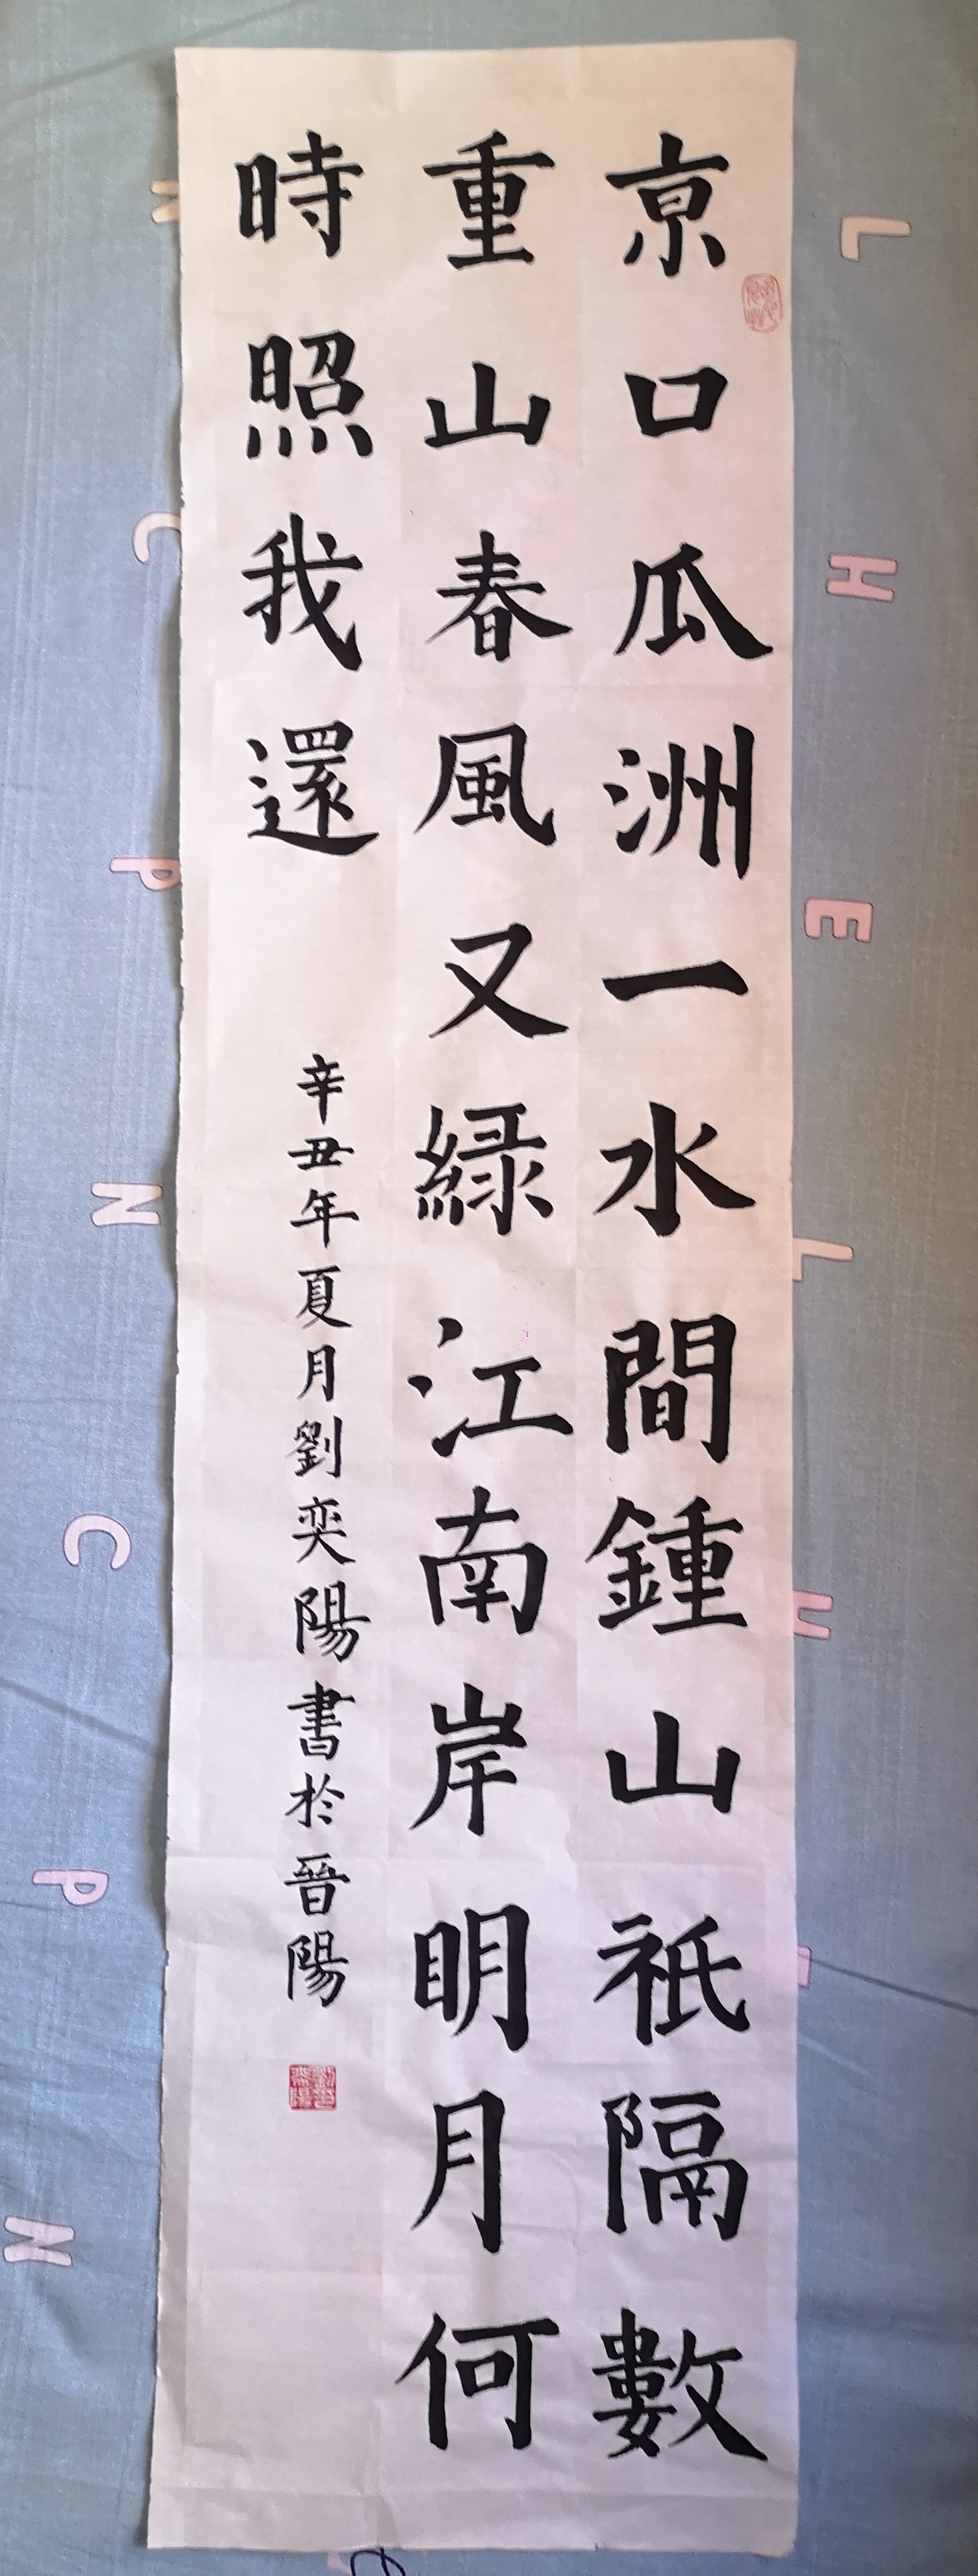 京口瓜洲一水間鍾山祇隔數
重山春風又綠江南岸明月何
時照我還
辛丑年夏月劉奕陽書於晉陽
L
H
E
L
H
N
C
P
N
C
P
N